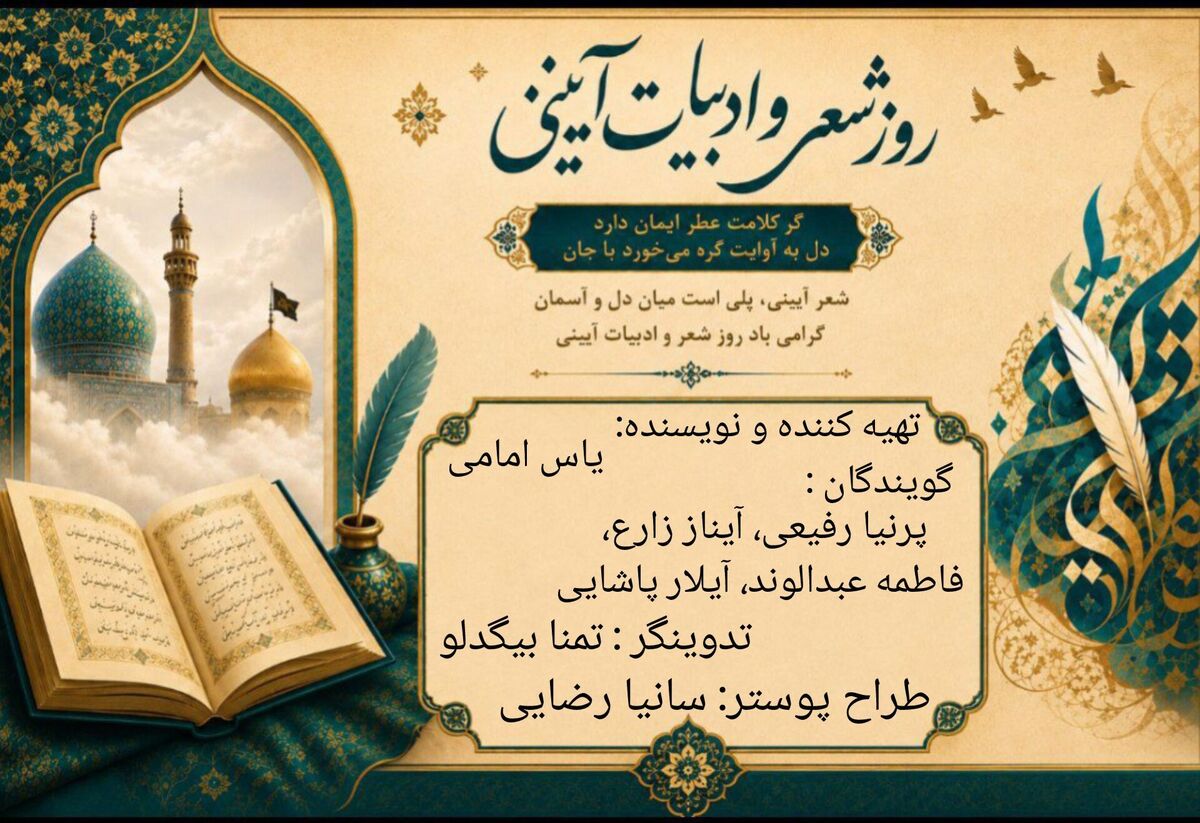 روز شعر و ادبیات آیینی
گر کلامت عطر ایمان دارد
دل به آوایت گره می‌خورد با جان
شعر آیینی، پلی است میان دل و آسمان
گرامی باد روز شعر و ادبیات آیینی
تهیه کننده و نویسنده:
یاس امامی
گویندگان :
پرنیا رفیعی، آیناز زارع،
فاطمه عبدالوند، آیلار پاشایی
تدوینگر : تمنا بیگدلو
طراح پوستر: سانیا رضایی